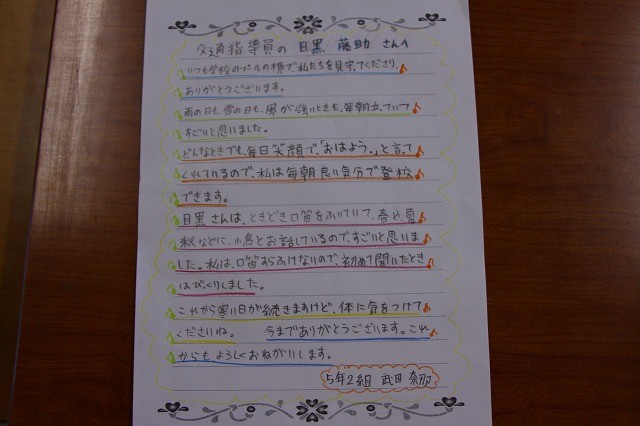 交通指導員の 目黒 藤助 さんへ
いつも学校のプールの横で、私たちを見守ってくださり、
ありがとうございます。
雨の日も、雪の日も、風が強いときも、毎朝立っていて
すごいと思いました。
どんなときでも、毎日笑顔で、「おはよう。」と言って
くれているので、私は毎朝良い気分で登校
できます。
目黒さんは、ときどき口笛をふいていて、春や、夏、
秋などに、小鳥とお話しているので、すごいと思いま
した。私は、口笛すらふけないので、初めて聞いたとき
はびっくりしました。
これから寒い日が続きますけど、体に気をつけて
くださいね。 今までありがとうございます。これ
からもよろしくおねがいします。
5年2組 武田 奈那